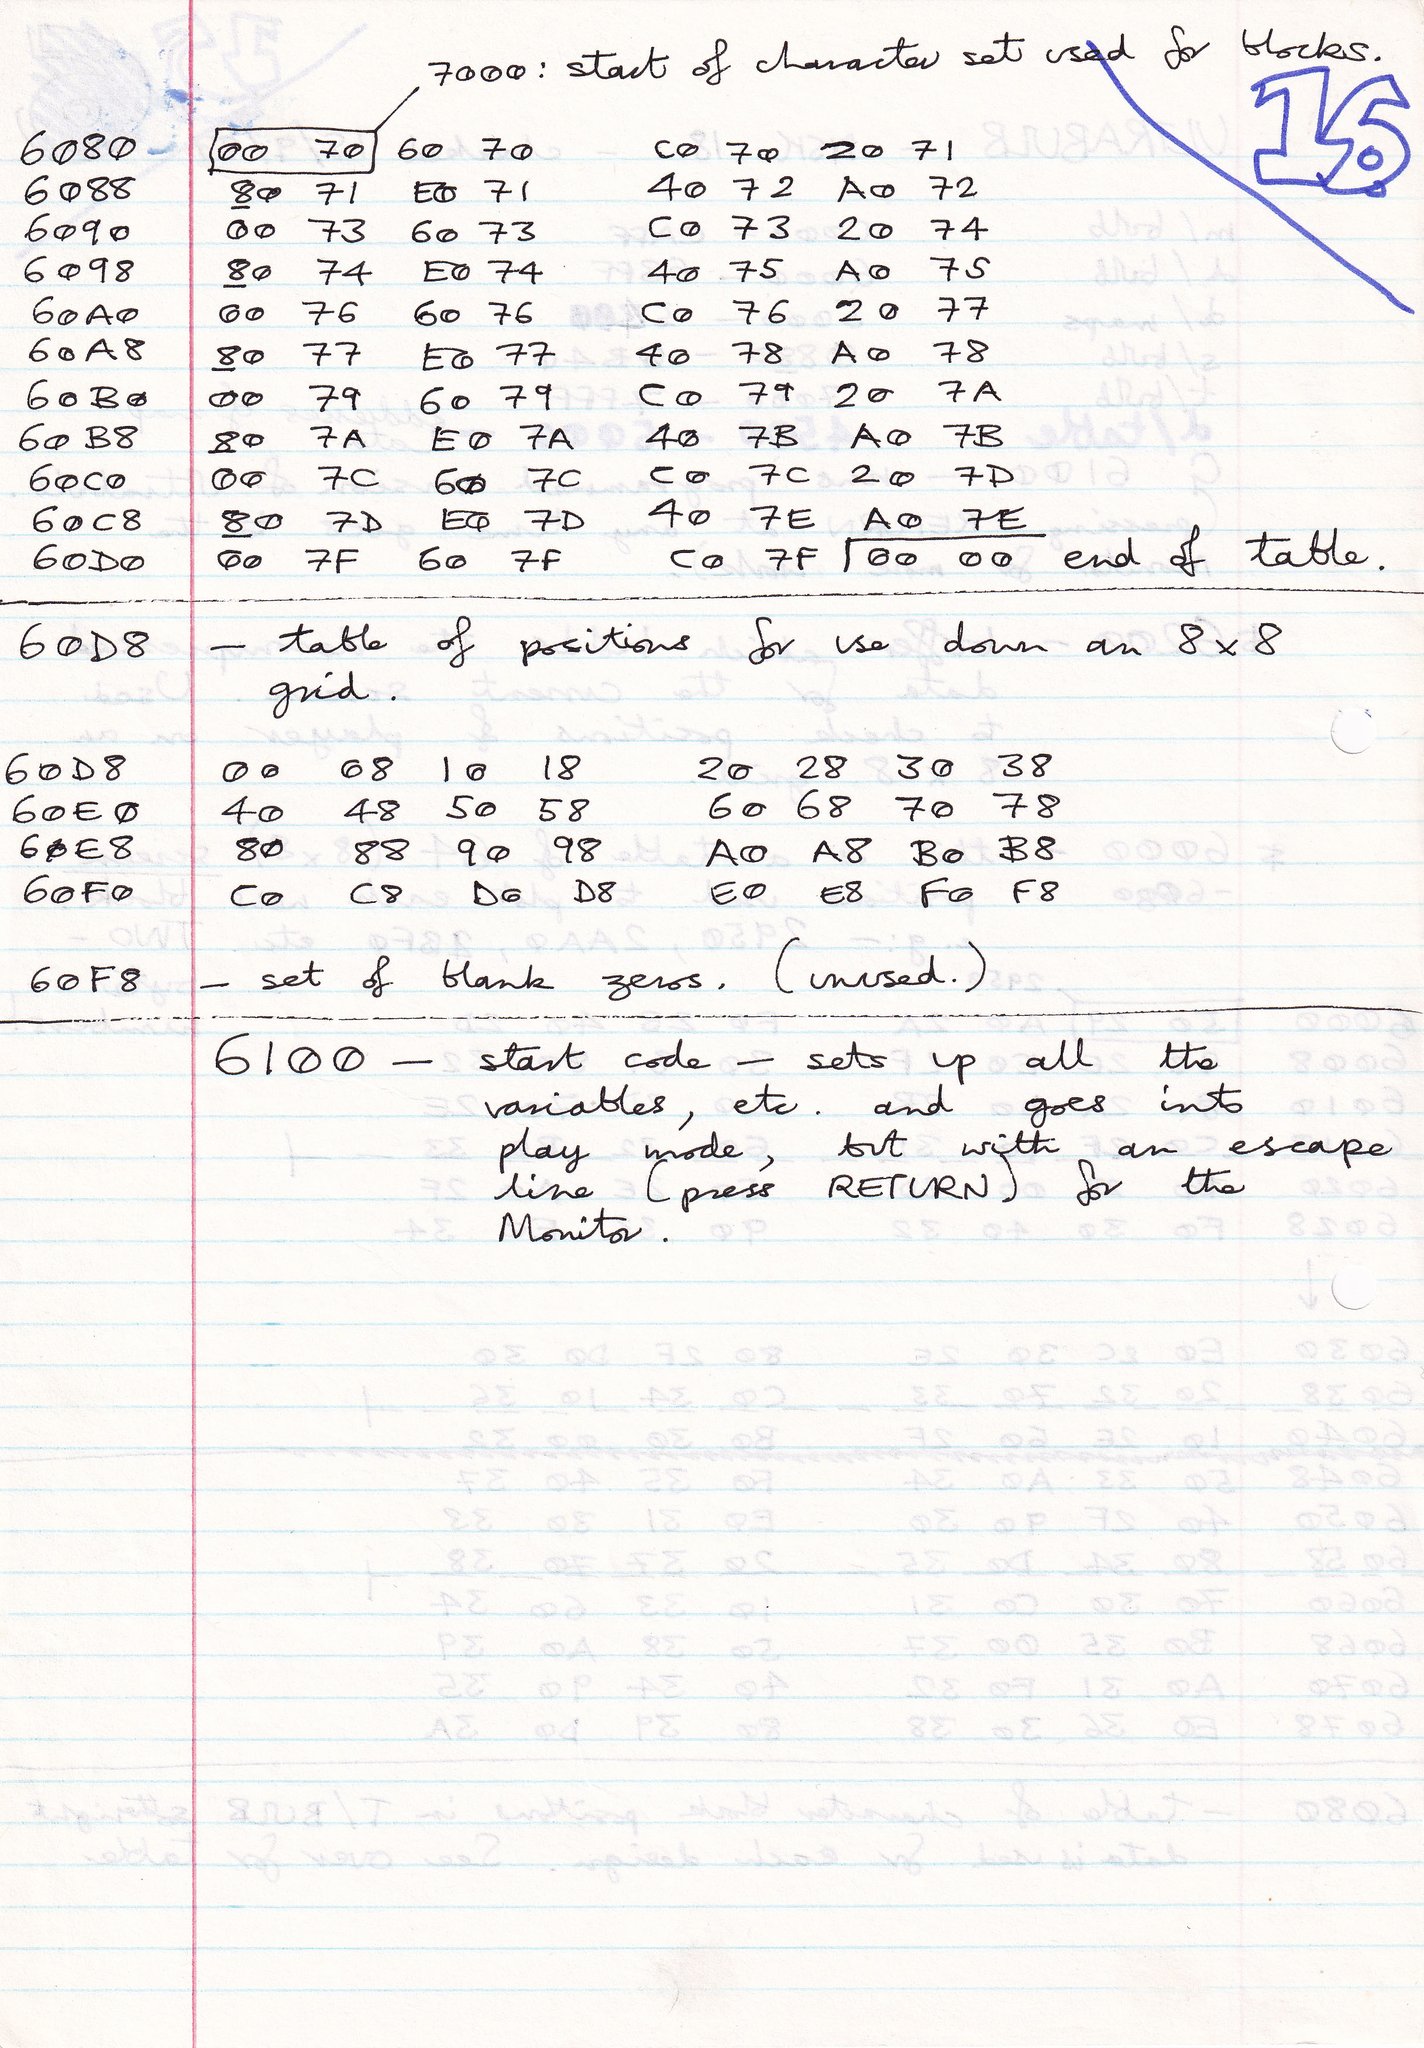 7000: start of character set used for blocks.
16.
6080 00 70 60 70 C0 70 20 71
6088 80 71 E0 71 40 72 A0 72
6090 00 73 60 73 C0 73 20 74
6098 80 74 E0 74 40 75 A0 75
60A0 00 76 60 76 C0 76 20 77
60A8 80 77 E0 77 40 78 A0 78
60B0 00 79 60 79 C0 79 20 7A
60B8 80 7A E0 7A 40 7B A0 7B
60C0 00 7C 60 7C C0 7C 20 7D
60C8 80 7D E0 7D 40 7E A0 7E
60D0 00 7F 60 7F C0 7F 00 00 end of table.
60D8 – table of positions for use down an 8x8
grid.
60D8 00 08 10 18 20 28 30 38
60E0 40 48 50 58 60 68 70 78
60E8 80 88 90 98 A0 A8 B0 B8
60F0 C0 C8 D0 D8 E0 E8 F0 F8
60F8 – set of blank zeros. (unused.)
6100 – start code – sets up all the
variables, etc. and goes into
play mode, but with an escape
line (press RETURN) for the
Monitor.